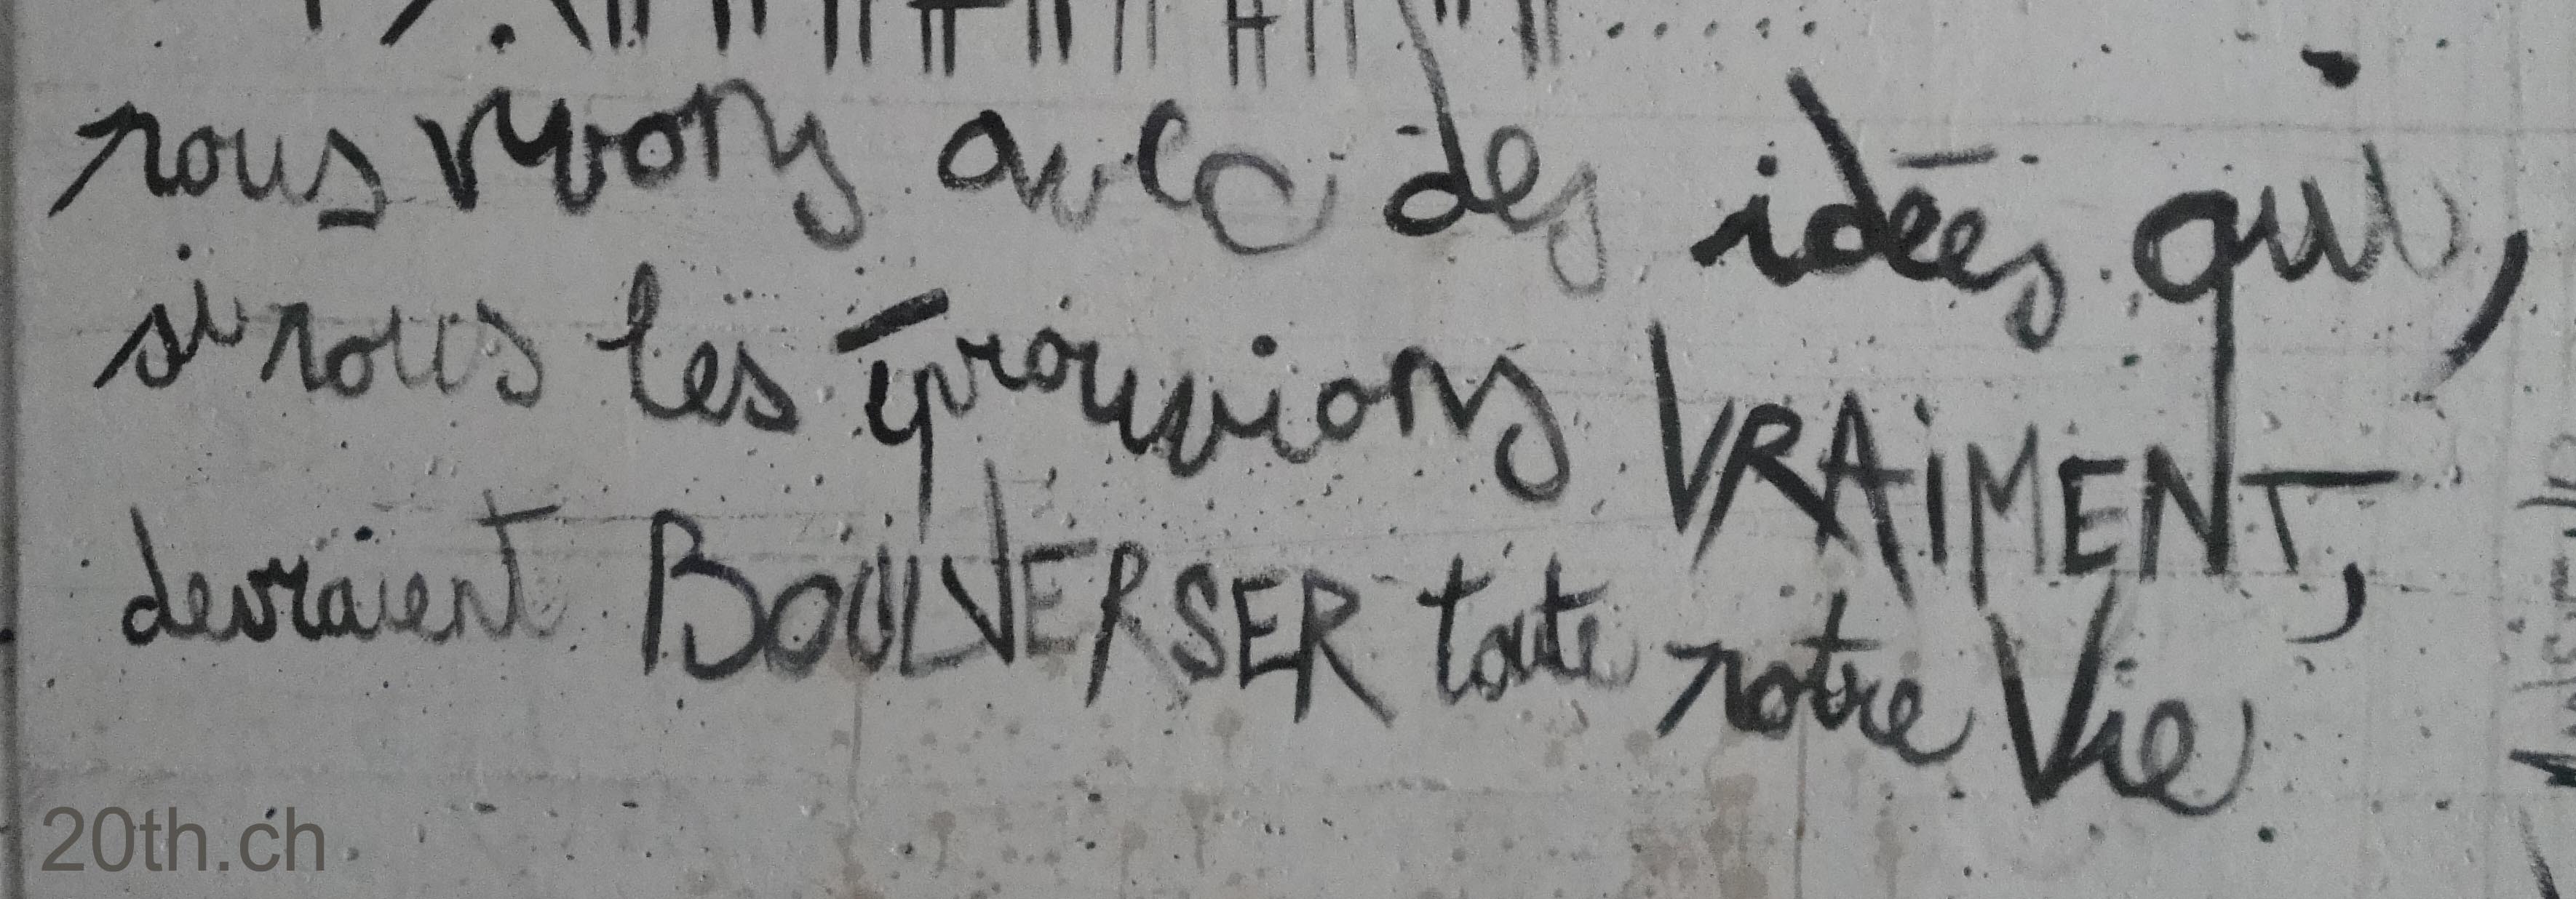 nous vivons avec des idées qui,
si nous les éprouvions VRAiMENT,
devraient BOULVERSER toute notre Vie
20th.ch